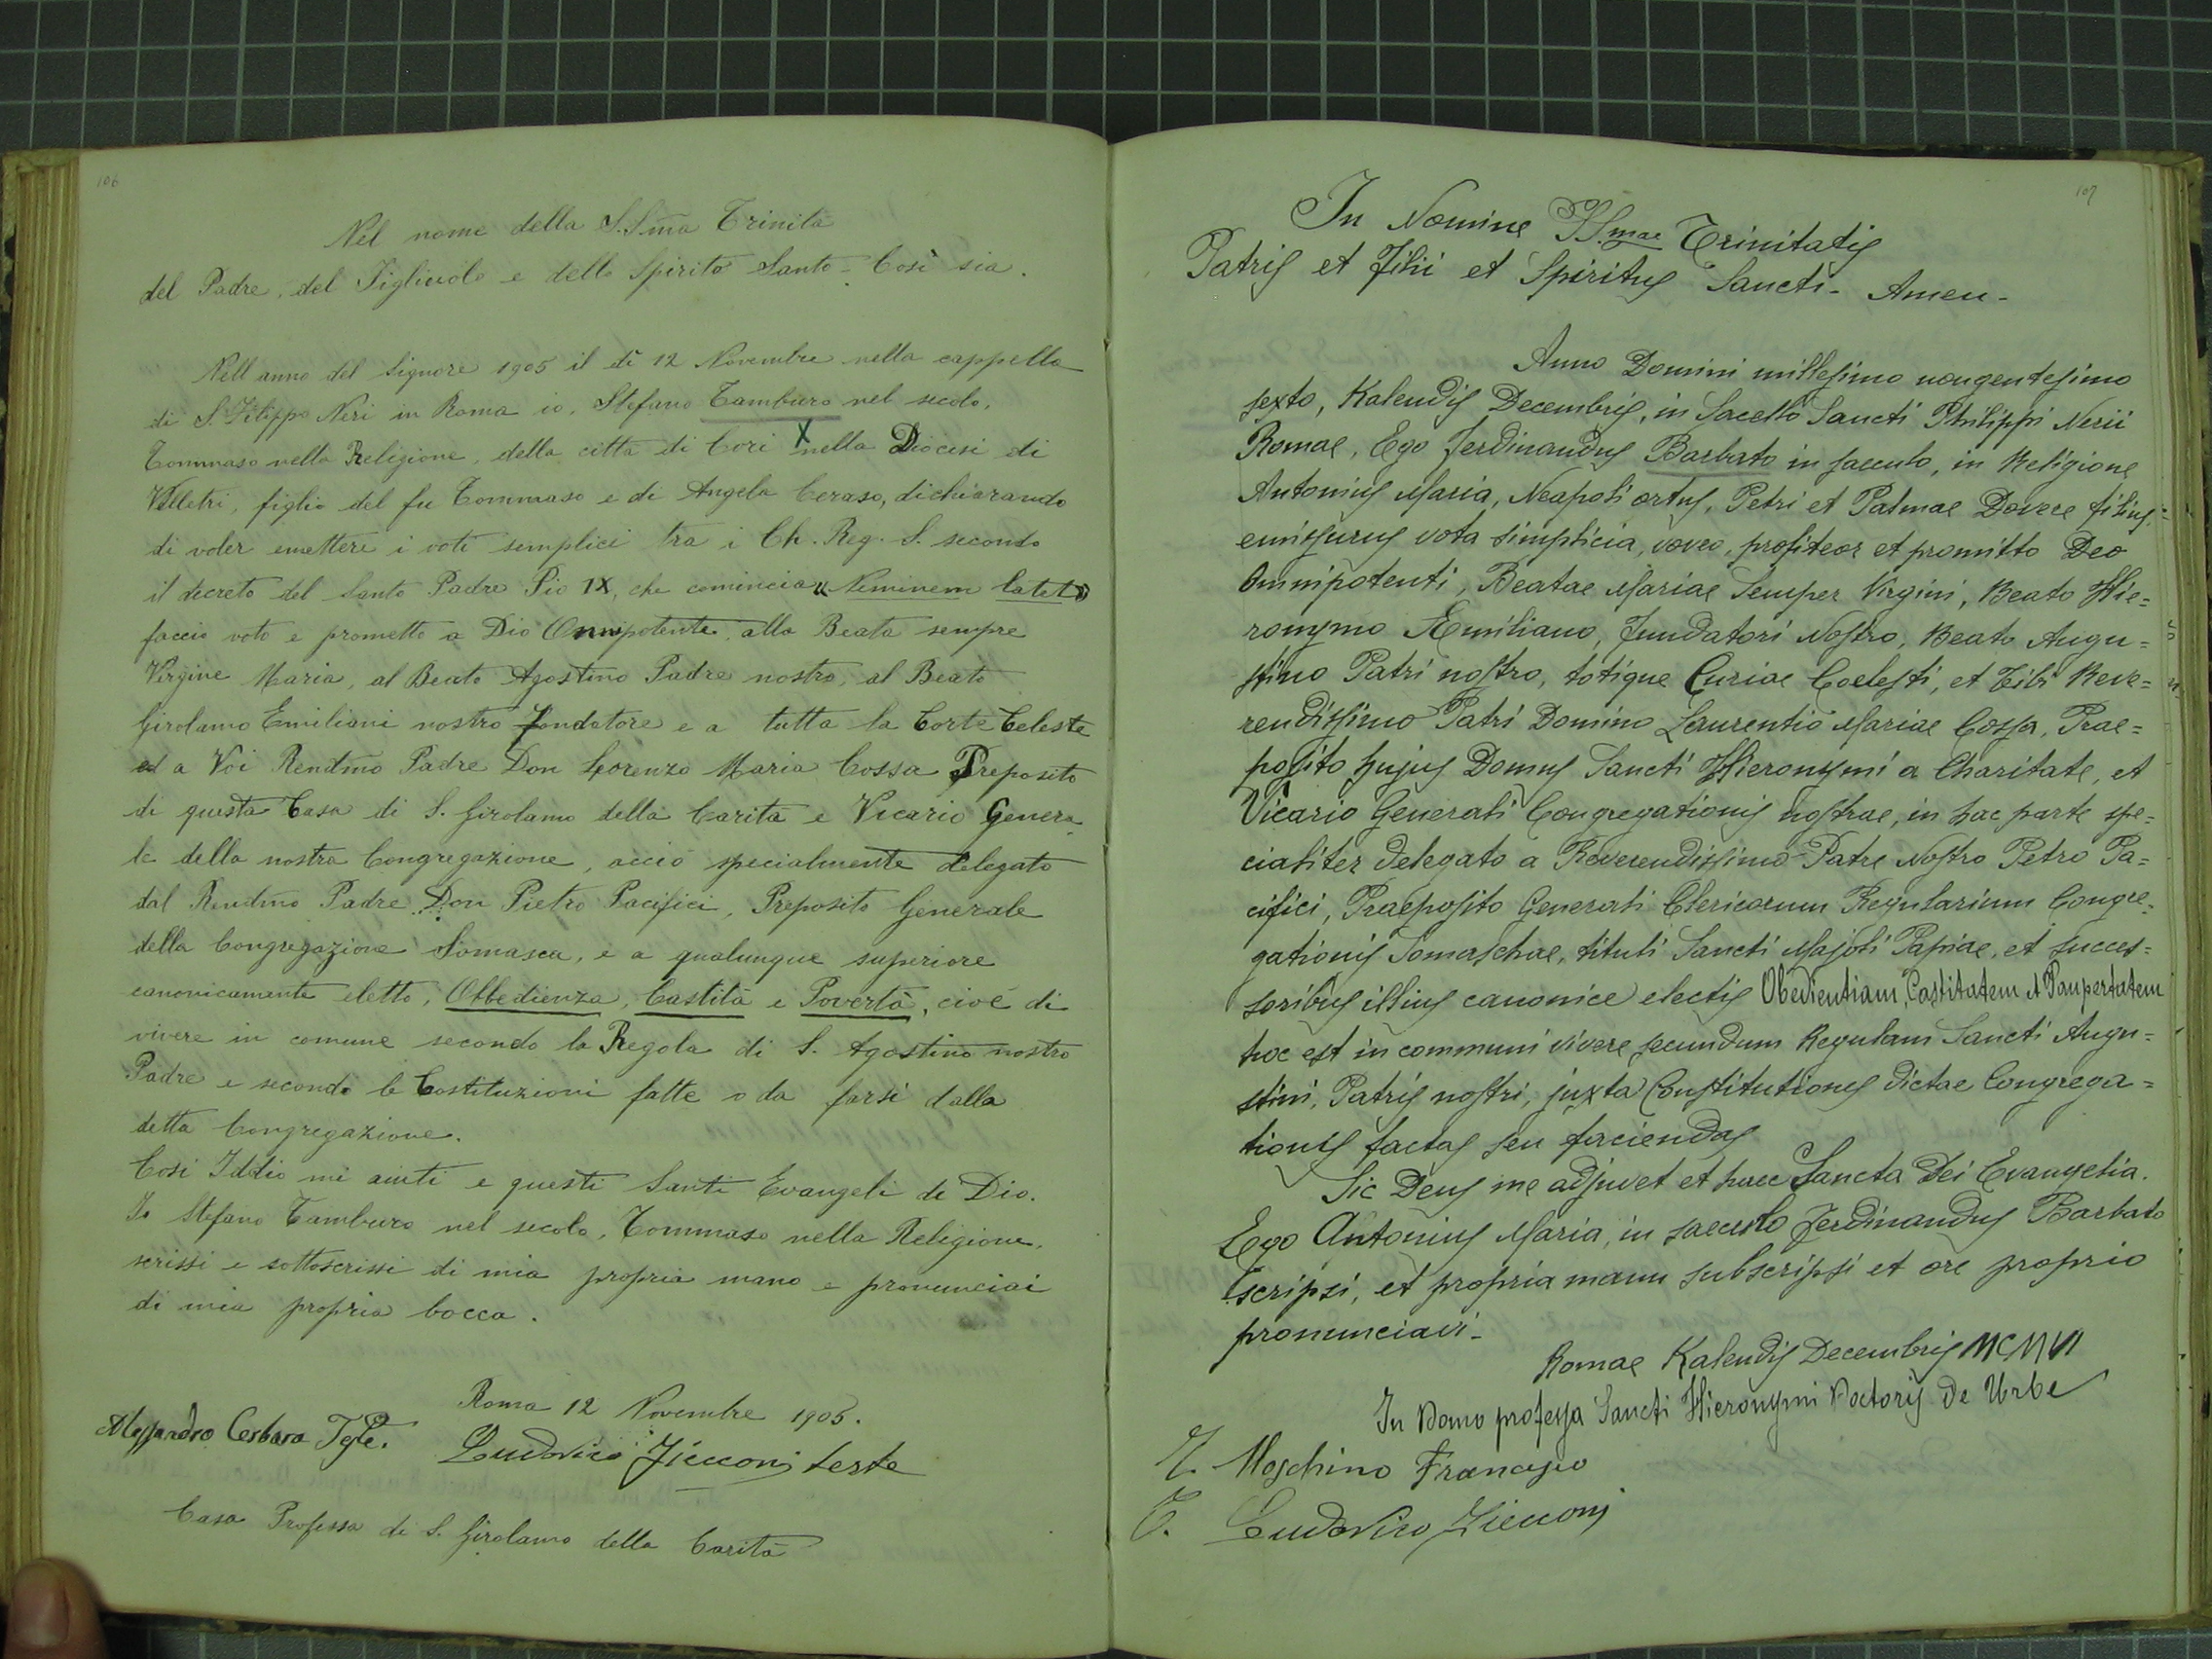 106
Nel nome della S.Sma Trinità
del Padre, del Figliuolo e dello Spirito Santo - Così sia.
Nell anno del Signore 1905 il dì 12 Novembre nella cappella
di S. Filippo Neri in Roma io, Stefano Tamburo nel secolo,
Tommaso nella Religione, della città di Cori X nella Diocesi di
Velletri, figlio del fu Tommaso e di Angela Ceraso, dichiarando
di voler emettere i voti semplici tra i Ch. Reg. S. secondo
il decreto del Santo Padre Pio IX, che comincia « Neminem latet »
faccio voto e prometto a Dio Onnipotente, alla Beata sempre
Virgine Maria, al Beato Agostino Padre nostro, al Beato
Girolamo Emiliani nostro fondatore e a tutta la Corte Celeste
ed a Voi Rendmo Padre Don Lorenzo Maria Cossa Preposito
di questa Casa di S. Girolamo della Carità e Vicario Genera
le della nostra Congregazione, acciò specialmente delegato
dal Rendmo Padre Don Pietro Pacifici, Preposito Generale
della Congregazione Somasca, e a qualunque superiore
canonicamente eletto, Obbedienza, Castità e Povertà, cioè di
vivere in comune secondo la Regola di S. Agostino nostro
Padre e secondo le Costituzioni fatte o da farsi dalla
detta Congregazione.
Così Iddio mi aiuti e questi Santi Evangeli di Dio.
Io Stefano Tamburo nel secolo, Tommaso nella Religione,
scrissi e sottoscrissi di mia propria mano e pronunciai
di mia propria bocca.
Roma 12 Novembre 1905.
Alessandro Cerbara Teste. Ludovico Zicconi teste
Casa Professa di S. Girolamo della Carità
107
In Nomine SS.mae Trinitatis
Patris et Filii et Spiritus Sancti - Amen -
Anno Domini millesimo nongentesimo
sexto, Kalendis Decembris, in Sacello Sancti Philippi Nerii
Romae, Ego Ferdinandus Barbato in saeculo, in Religione
Antonius Maria, Neapoli ortus, Petri et Palmae Dovere filius,
emissurus vota simplicia, voveo, profiteor et promitto Deo
Omnipotenti, Beatae Mariae Semper Virgini, Beato Hie=
ronymo Æmiliano, Fundatori Nostro, Beato Augu=
stino Patri nostro, totique Curiae Coelesti, et Tibi Reve=
rendissimo Patri Domino Laurentio Mariae Cossa, Prae=
posito hujus Domus Sancti Hieronymi a Charitate, et
Vicario Generali Congregationis nostrae, in hac parte spe=
cialiter delegato a Reverendissimo Patre Nostro Petro Pa=
cifici, Praeposito Generali Clericorum Regularium Congre=
gationis Somaschae, tituli Sancti Majoli Papiae, et succes=
soribus illius canonice electis Obedientiam, Castitatem et Paupertatem
hoc est in communi vivere secundum Regulam Sancti Augu=
stini, Patris nostri, juxta Constitutiones dictae Congrega=
tionis factas seu faciendas
Sic Deus me adjuvet et haec Sancta Dei Evangelia.
Ego Antonius Maria, in saeculo Ferdinandus Barbato
scripsi, et propria manu subscripsi et ore proprio
pronunciavi -
Romae Kalendis Decembris MCMVI
In Domo professa Sancti Hieronymi Doctoris de Urbe
T. Moschino Francesco
T. Ludovico Zicconi